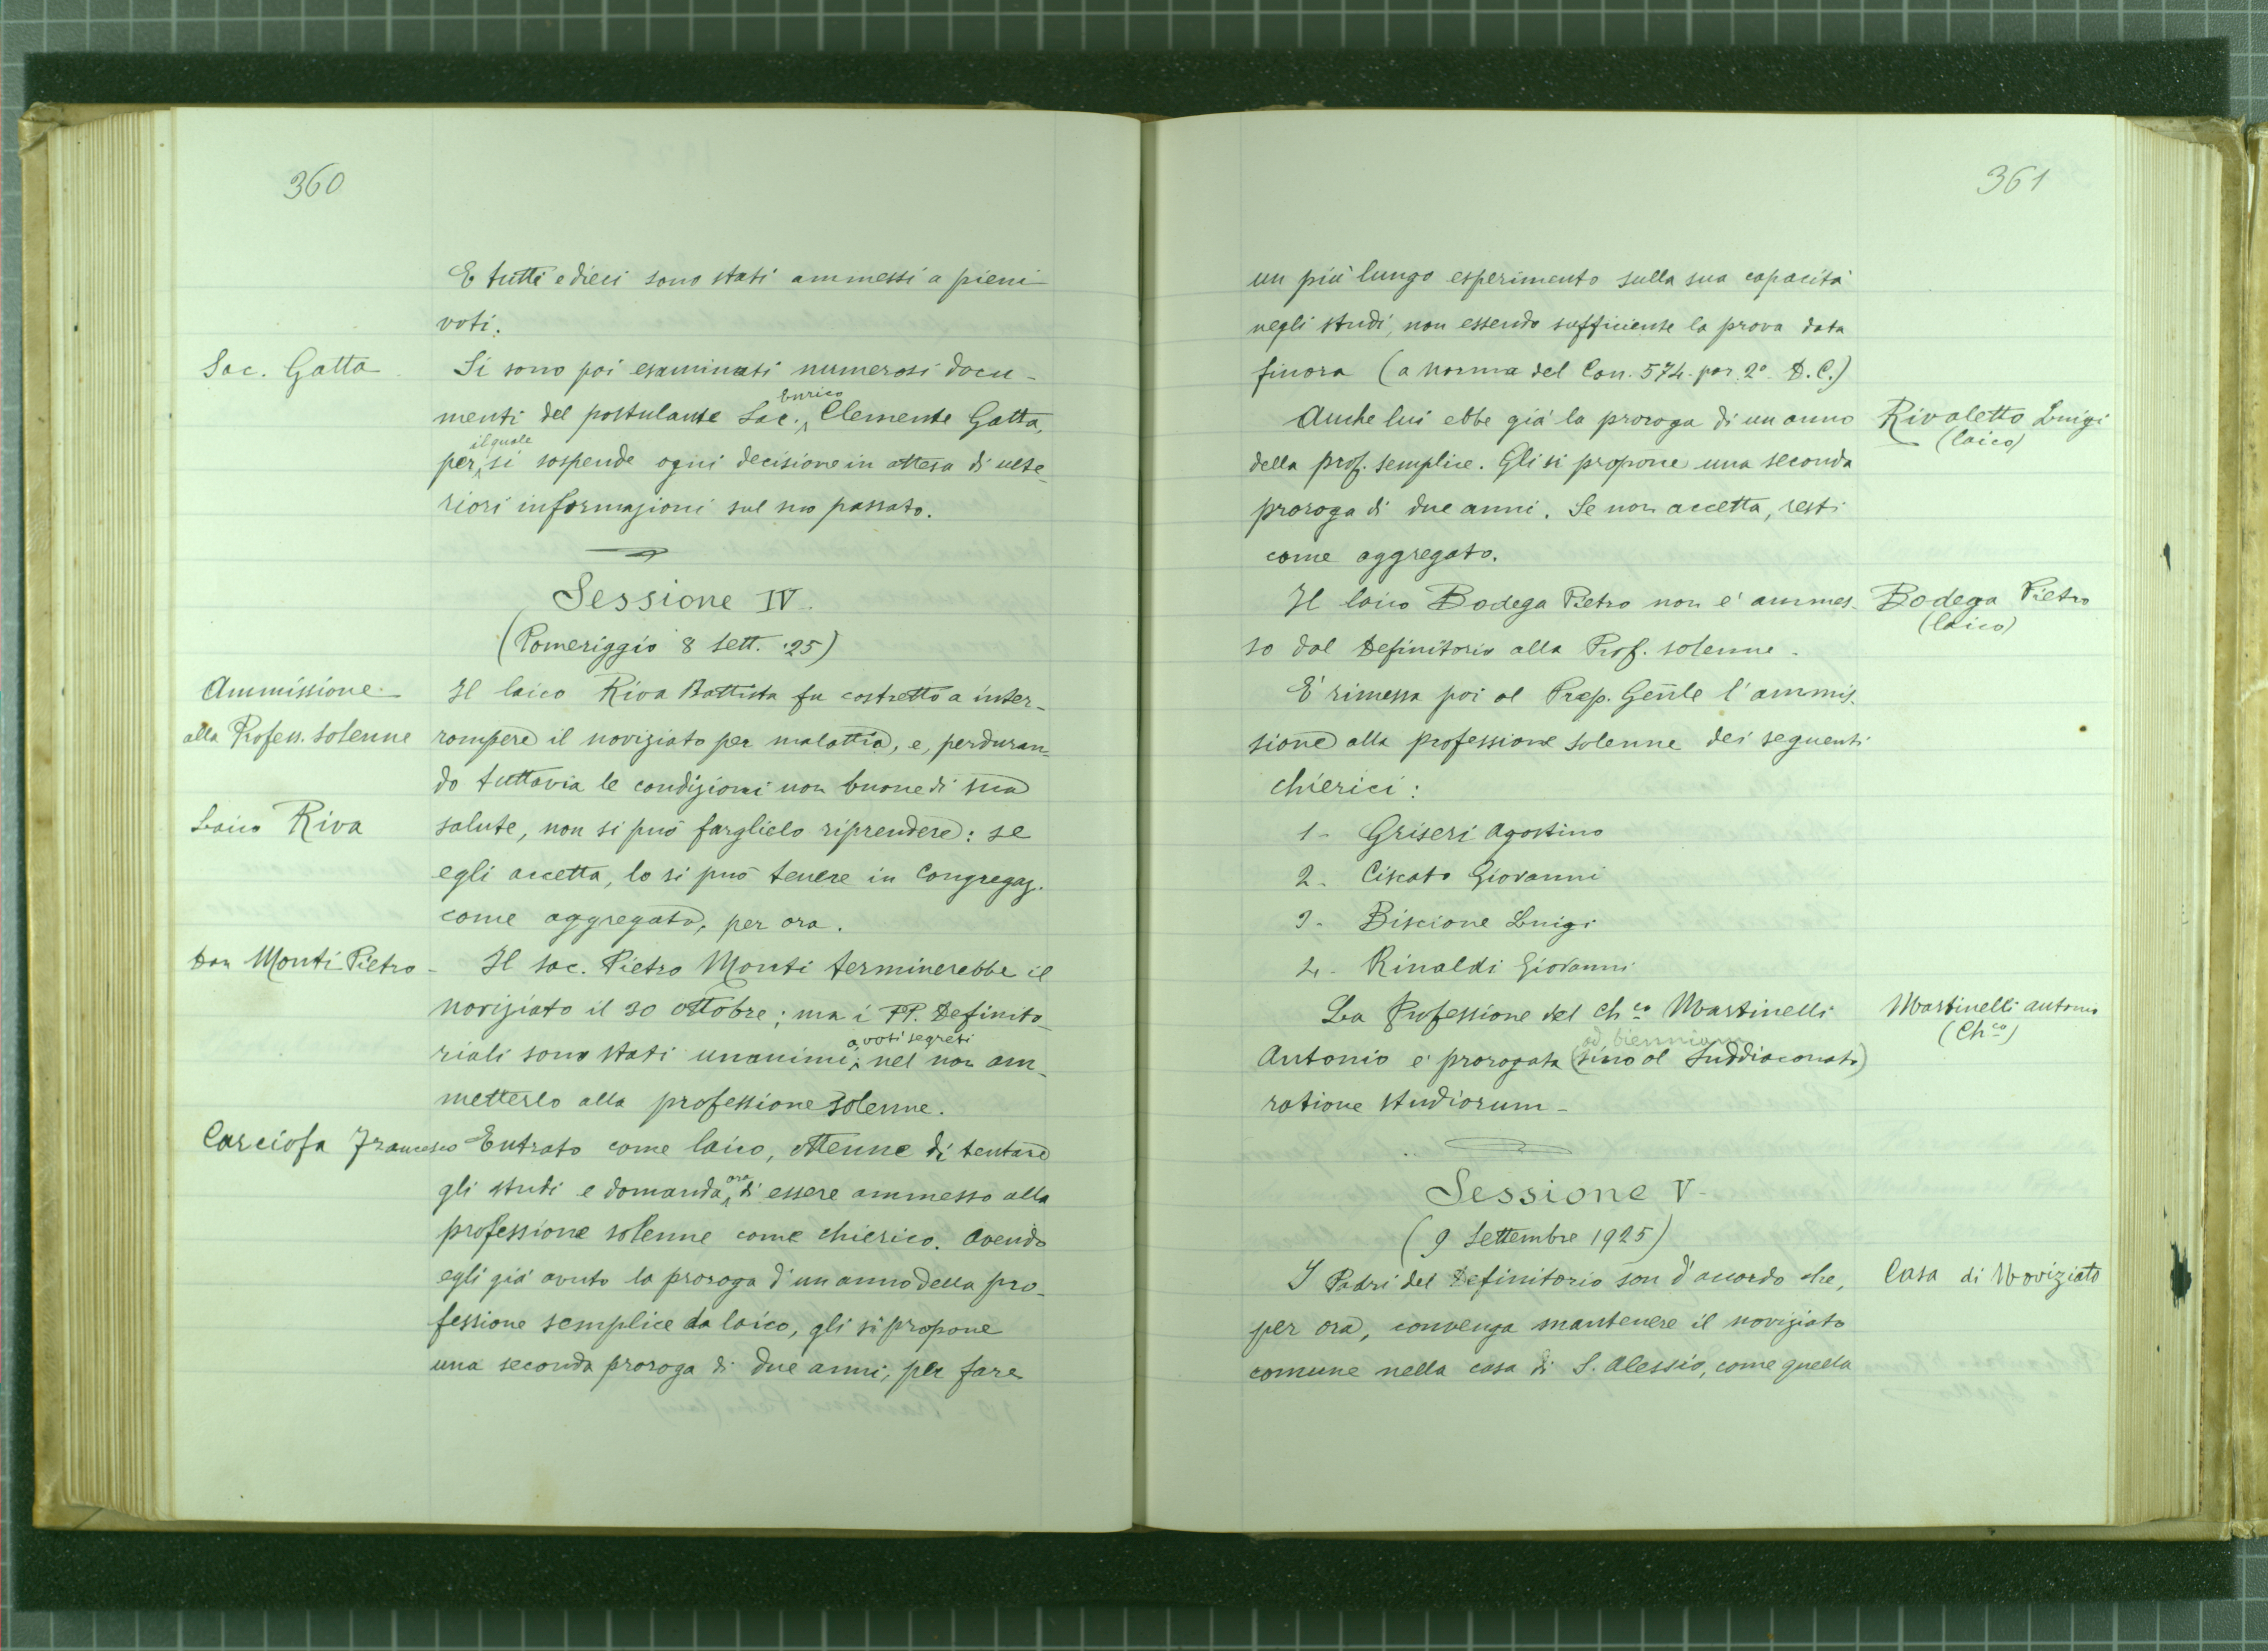 360
E tutti e dieci sono stati ammessi a pieni
voti.
Sac. Gatta
Si sono poi esaminati numerosi docu-
menti del postulante Sac. Enrico Clemente Gatta,
per il quale si sospende ogni decisione in attesa di ulte-
riori informazioni sul suo passato.
Sessione IV.
(Pomeriggio 8 Sett. '25)
Ammissione
alla Profess. solenne
Laico Riva
Il laico Riva Battista fu costretto a inter-
rompere il noviziato per malattia, e, perduran-
do tuttavia le condizioni non buone di sua
salute, non si può farglielo riprendere: se
egli accetta, lo si può tenere in Congregaz.
come aggregato, per ora.
Don Monti Pietro -
Il sac. Pietro Monti terminerebbe il
noviziato il 30 ottobre; ma i PP. Definito-
riali sono stati unanimi, a voti segreti nel non am-
metterlo alla professione solenne.
Carciofa Francesco
Entrato come laico, ottenne di tentare
gli studi e domanda ora di essere ammesso alla
professione solenne come chierico. Avendo
egli già avuto la proroga d'un anno della pro-
fessione semplice da laico, gli si propone
una seconda proroga di due anni, per fare
361
un più lungo esperimento sulla sua capacità
negli studi, non essendo sufficiente la prova data
finora (a norma del Can. 574. par. 2º D. C.)
Rivaletto Luigi
(laico)
Anche lui ebbe già la proroga di un anno
della prof. semplice. Gli si propone una seconda
proroga di due anni. Se non accetta, resti
come aggregato.
Bodega Pietro
(laico)
Il laico Bodega Pietro non è ammes-
so dal Definitorio alla Prof. solenne.
E' rimessa poi al Prep. Gen̄le l'ammis-
sione alla professione solenne dei seguenti
chierici:
1- Griseri Agostino
2- Ciscato Giovanni
3- Biscione Luigi
4- Rinaldi Giovanni
Martinelli Antonio
(Ch.co)
La Professione del Ch.co Martinelli
ad biennium
Antonio è prorogata (sino al Suddiaconato)
ratione studiorum-
Sessione V-
(9 Settembre 1925)
Casa di Noviziato
I Padri del Definitorio son d'accordo che,
per ora, convenga mantenere il noviziato
comune nella casa di S. Alessio, come quella